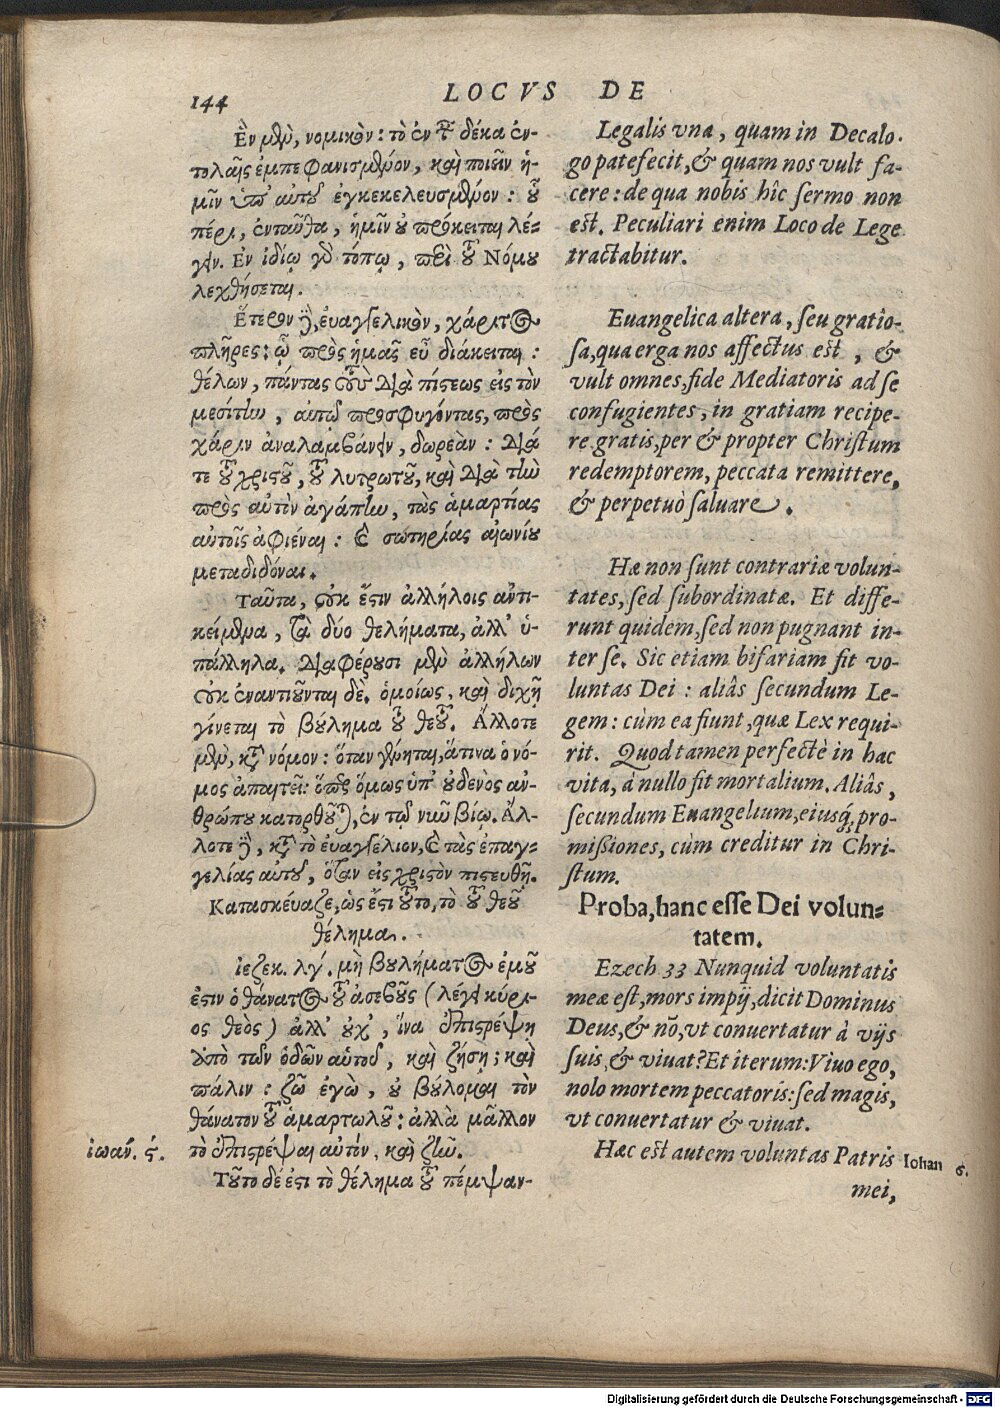 144
LOCVS DE
Ἓν μὲν, νομικὸν: τὸ ἐν ταῖς δέκα ἐν-
τολαῖς ἐμπεφανισμένον, καὶ ποιεῖν ἡ-
μῖν ὑπ' αὐτοῦ ἐγκεκελευσμένον: οὗ
πέρι, ἐνταῦθα, ἡμῖν οὐ πρόκειται λέ-
γειν. Ἐν ἰδίῳ γὰρ τόπῳ, περὶ τοῦ Νόμου
λεχθήσεται.
Ἕτερον δὲ, ἐυαγγελικὸν, χάριτος
πλῆρες: ᾧ πρὸς ἡμᾶς εὖ διάκειται:
θέλων, πάντας τοὺς διὰ πίστεως εἰς τὸν
μεσίτην, αὐτῷ προσφυγόντας, πρὸς
χάριν ἀναλαμβάνειν, δωρεὰν: διά
τε τοῦ χριστοῦ, τοῦ λυτρωτοῦ, καὶ διὰ τὴν
πρὸς αὐτὸν ἀγάπην, τὰς ἁμαρτίας
αὐτοῖς ἀφιέναι: καὶ σωτηρίας αἰωνίου
μεταδιδόναι.
Ταῦτα, οὐκ ἔστιν ἀλλήλοις ἀντι-
κείμενα, τὰ δύο θελήματα, ἀλλ' ὑ-
πάλληλα. Διαφέρουσι μὲν ἀλλήλων
οὐκ ἐναντιοῦνται δὲ. ὁμοίως, καὶ διχῆ
γίνεται τὸ βούλημα τοῦ θεοῦ. Ἄλλοτε
μὲν, κατὰ νόμον: ὅταν γένηται, ἅτινα ὁ νό-
μος ἀπαιτεῖ: ὅπερ ὅμως ὑπ' οὐδενὸς ἀν-
θρώπου κατορθοῦται, ἐν τῷ νῦν βίῳ. Ἄλ-
λοτε δὲ, κατὰ τὸ ἐυαγγέλιον, καὶ τὰς ἐπαγ-
γελίας αὐτοῦ, ὅταν εἰς χριστὸν πιστευθῇ.
Κατασκέυαζε, ὡς ἔστι τοῦτο, τὸ τοῦ θεοῦ
θέλημα.
ἰεζεκ. λγ΄. μὴ βουλήματος ἐμοῦ
ἐστιν ὁ θάνατος τοῦ ἀσεβοῦς (λέγει κύρι-
ος θεὸς) ἀλλ' οὐχ', ἵνα ἐπιστρέψῃ
ἀπὸ τῶν ὁδῶν αὐτοῦ, καὶ ζήσῃ; καὶ
πάλιν: ζῶ ἐγὼ, οὐ βούλομαι τὸν
θάνατον τοῦ ἁμαρτωλοῦ: ἀλλὰ μᾶλλον
τὸ ἐπιστρέψαι αὐτόν, καὶ ζῆν.
ἰωάν. ϛ.
Τοῦτο δέ ἐστι τὸ θέλημα τοῦ πέμψαν-
Legalis vna, quam in Decalo-
go patefecit, & quam nos vult fa-
cere: de qua nobis hîc sermo non
est. Peculiari enim Loco de Lege
tractabitur.
Euangelica altera, seu gratio-
sa, qua erga nos affectus est, &
vult omnes, fide Mediatoris ad se
confugientes, in gratiam recipe-
re gratis, per & propter Christum
redemptorem, peccata remittere,
& perpetuò saluare.
Hæ non sunt contrariæ volun-
tates, sed subordinatæ. Et diffe-
runt quidem, sed non pugnant in-
ter se. Sic etiam bifariam fit vo-
luntas Dei: aliâs secundum Le-
gem: cùm ea fiunt, quæ Lex requi-
rit. Quod tamen perfectè in hac
vita, à nullo fit mortalium. Aliâs,
secundum Euangelium, eiusq́, pro-
missiones, cùm creditur in Chri-
stum.
Proba, hanc esse Dei volun-
tatem.
Ezech 33 Nunquid voluntatis
meæ est, mors impij, dicit Dominus
Deus, & nõ, vt conuertatur à vijs
suis, & viuat? Et iterum: Viuo ego,
nolo mortem peccatoris: sed magis,
vt conuertatur & viuat.
Hæc est autem voluntas Patris
Iohan 6.
mei,
Digitalisierung gefördert durch die Deutsche Forschungsgemeinschaft - DFG